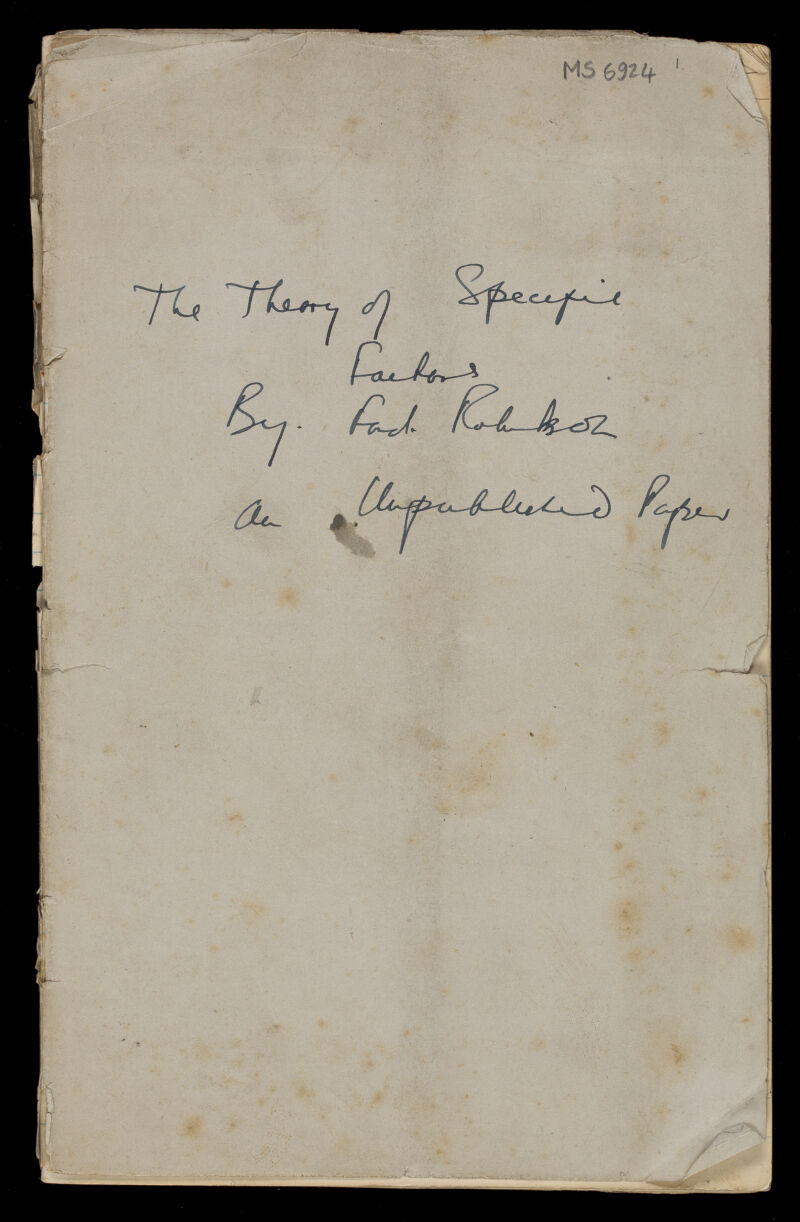 MS 6924
The Theory of Specific
Factors
By. Fred. Robinson
An Unpublished Paper